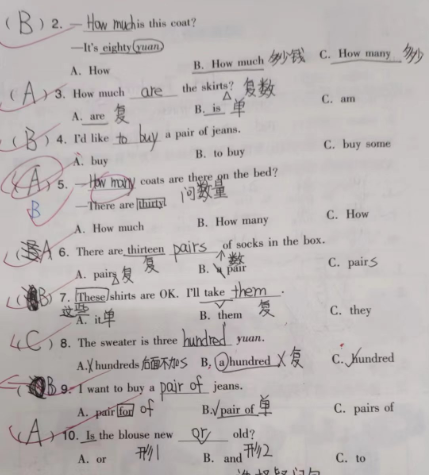 (B) 2. —How much is this coat?
—It's eighty yuan.
A. How B. How much 多少钱 C. How many 多少
(A) 3. How much are the skirts? 复数
A. are 复 B. is 单 C. am
(B) 4. I'd like to buy a pair of jeans.
A. buy B. to buy C. buy some
(A) 5. —How many coats are there on the bed?
B —There are thirty. 问数量
A. How much B. How many C. How
A 6. There are thirteen pairs of socks in the box.
A. pairs 复 B. a pair 数 C. pairs
B) 7. These shirts are OK. I'll take them.
这些 A. it 单 B. them 复 C. they
(C) 8. The sweater is three hundred yuan.
A. hundreds 后面不加s B. a hundred X 复 C. hundred
B 9. I want to buy a pair of jeans.
A. pair for of B. pair of 单 C. pairs of
(A) 10. Is the blouse new or old?
A. or 形1 B. and 形2 C. to